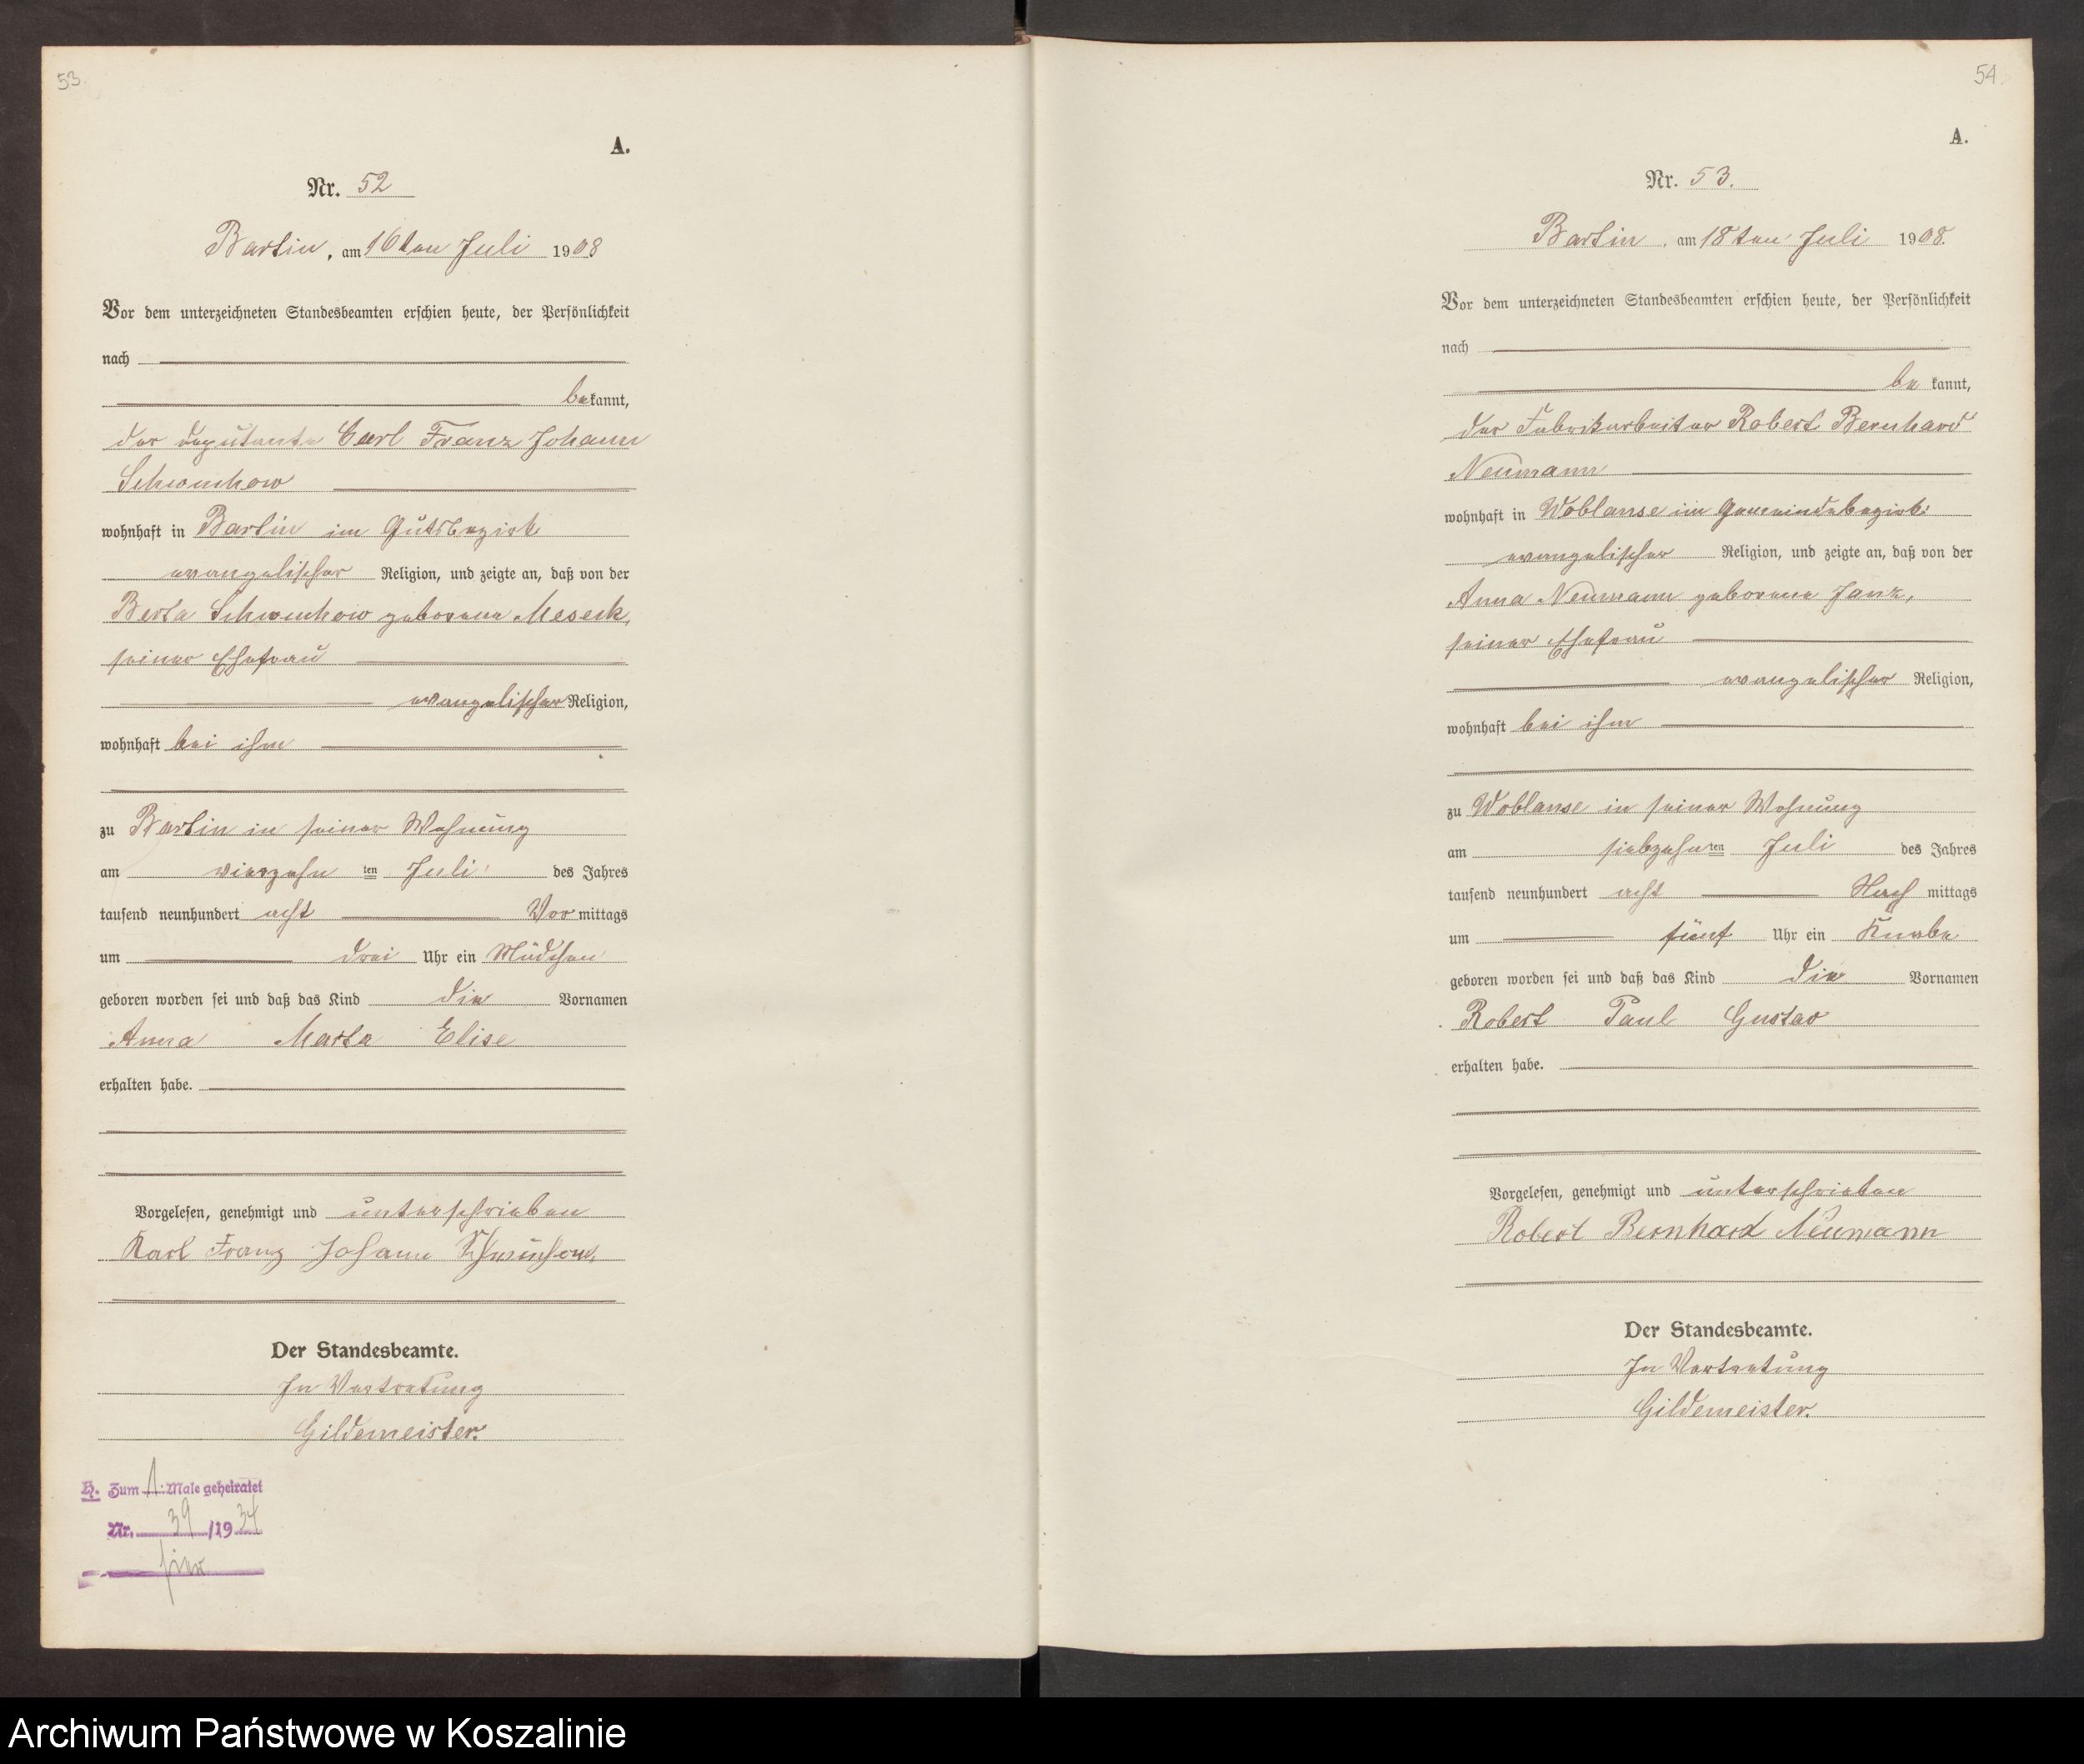 53.
A.
Nr. 52
Bartin, am 16ten Juli 1908
Vor dem unterzeichneten Standesbeamten erschien heute, der Persönlichkeit
nach
bekannt,
der Deputant Carl Franz Johann
Schwuchow
wohnhaft in Bartin im Gutsbezirk
evangelischer Religion, und zeigte an, daß von der
Berta Schwuchow geborene Meseck,
seiner Ehefrau
evangelischer Religion,
wohnhaft bei ihm
zu Bartin in seiner Wohnung
am vierzehn ten Juli des Jahres
tausend neunhundert acht Vor mittags
um drei Uhr ein Mädchen
geboren worden sei und daß das Kind die Vornamen
Anna Marta Elise
erhalten habe.
Vorgelesen, genehmigt und unterschrieben
Karl Franz Johann Schwuchow.
Der Standesbeamte.
In Vertretung
Gildemeister.
H. Zum 1. Male geheiratet
Nr. 39 /19 34
hier
54.
A.
Nr. 53.
Bartin, am 18ten Juli 1908.
Vor dem unterzeichneten Standesbeamten erschien heute, der Persönlichkeit
nach
be kannt,
der Fabrikarbeiter Robert Bernhard
Neumann
wohnhaft in Woblanse im Gemeindebezirk
evangelischer Religion, und zeigte an, daß von der
Anna Neumann geborene Janz,
seiner Ehefrau
evangelischer Religion,
wohnhaft bei ihm
zu Woblanse in seiner Wohnung
am siebzehn ten Juli des Jahres
tausend neunhundert acht Nach mittags
um fünf Uhr ein Knabe
geboren worden sei und daß das Kind die Vornamen
Robert Paul Gustav
erhalten habe.
Vorgelesen, genehmigt und unterschrieben
Robert Bernhard Neumann
Der Standesbeamte.
In Vertretung
Gildemeister.
Archiwum Państwowe w Koszalinie